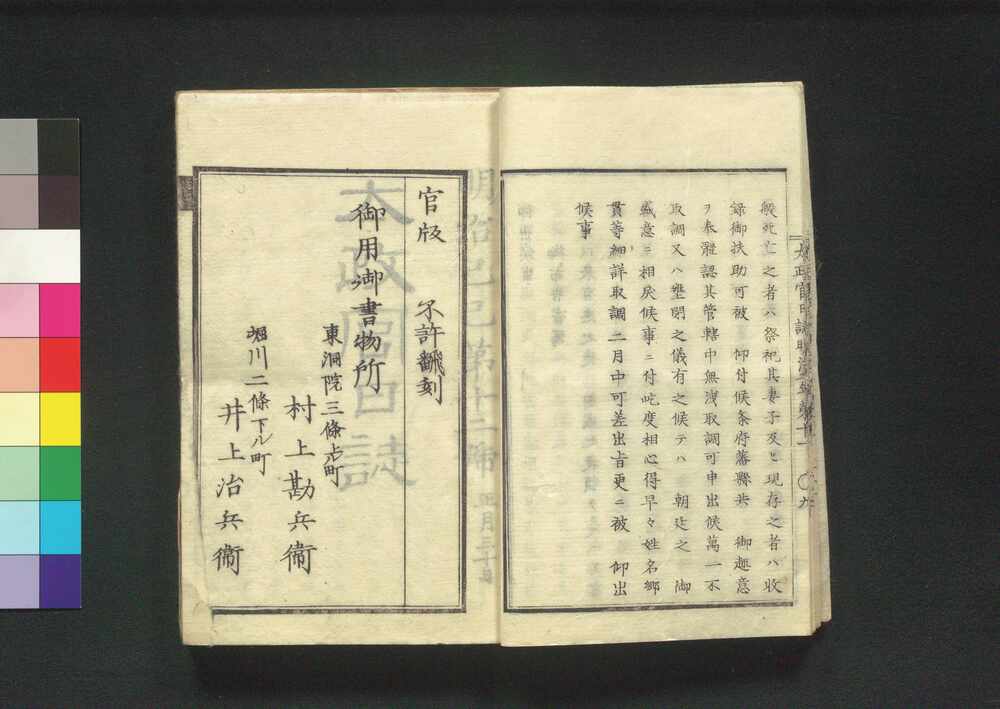 般死亡之者ハ祭祀其妻子及ヒ現存之者ハ收
録御扶助可被 仰付候条府藩縣共 御趣意
ヲ奉體認其管轄中無洩取調可申出候萬一不
取調又ハ壅閉之儀有之候テハ 朝廷之 御
盛意ニ相戾候事ニ付屹度相心得早々姓名鄉
貫等細詳取調二月中可差出旨更ニ被 仰出
候事
官版 不許翻刻
御用御書物所
東洞院三條上ル町
村上勘兵衛
堀川二條下ル町
井上治兵衛
太政官日誌
明治己巳第十二號 正月三十日